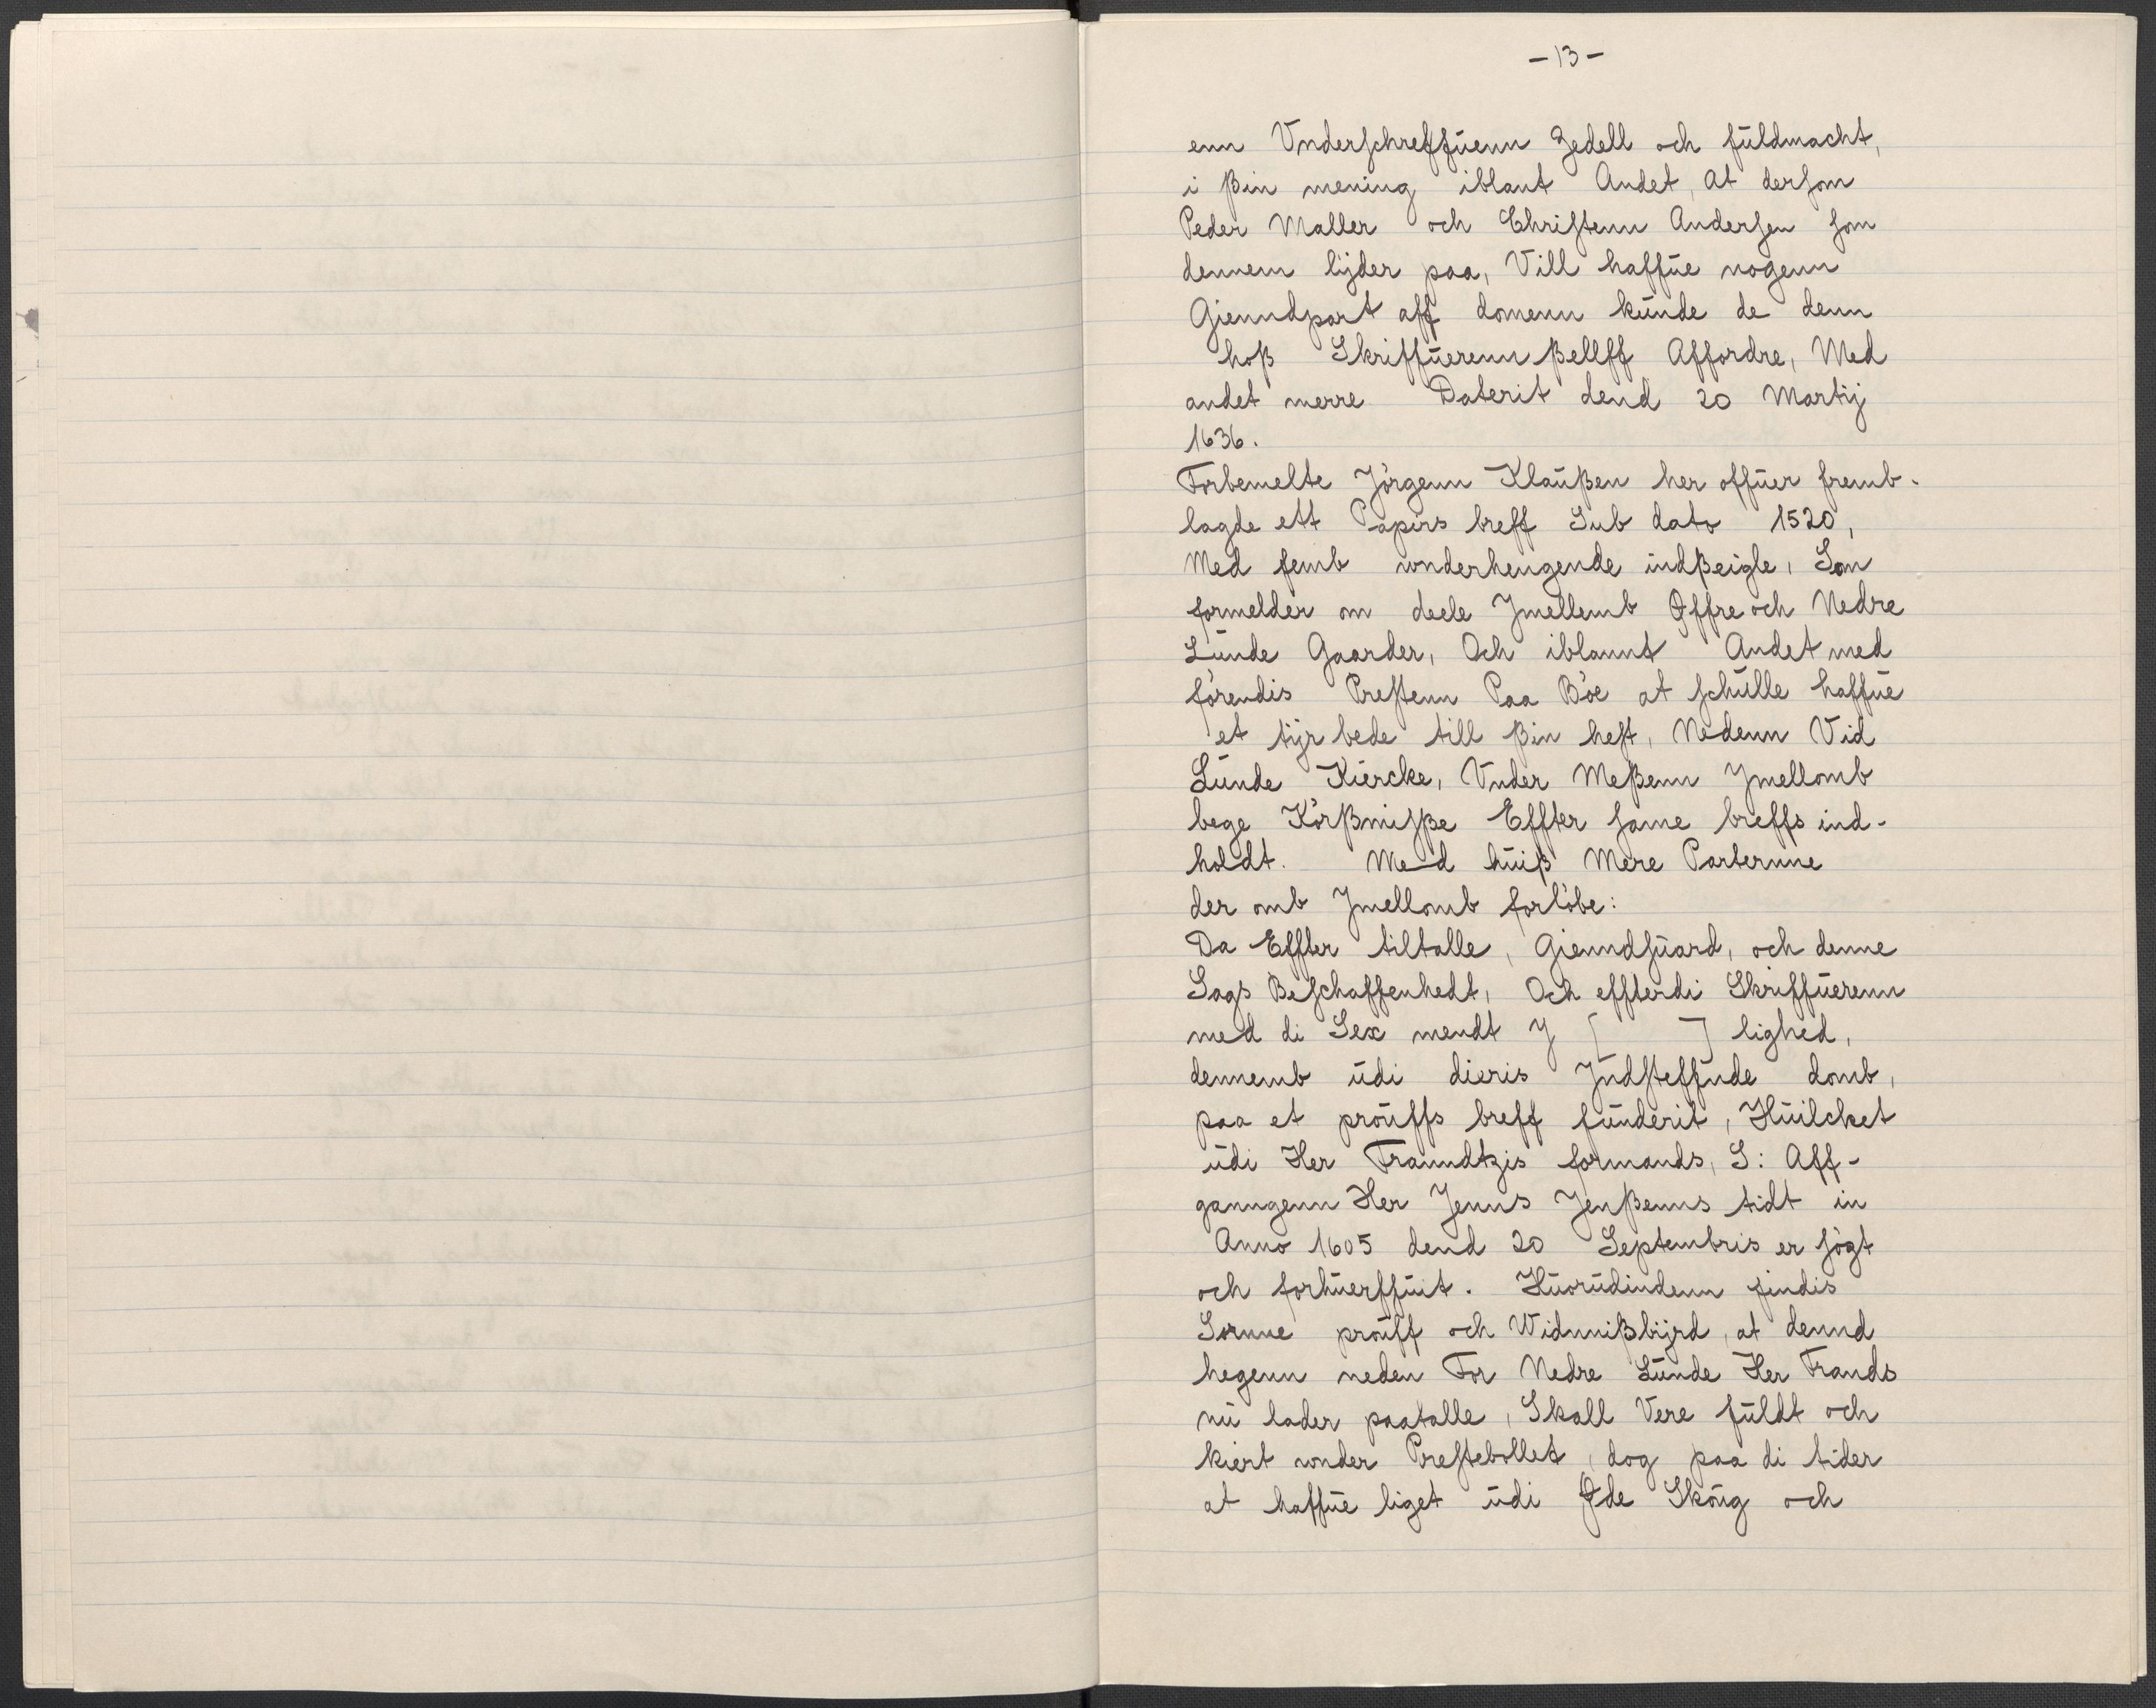 -13-
enn Vnderschreffűenn Zedell och fűldmacht,
i ßin mening iblant Andet, at dersom
Peder Maller och Christenn Andersen som
dennem lijder paa, Vill haffűe nogenn
Gienndpart aff domenn kűnde de denn
hoß Skriffűerenn ßellff Affordre, Med
andet merre Daterit dend 20 Martij
1636.
Forbemelte Jörgenn Klaűßen her offűer fremb-
lagde ett Papirs breff Sub dato 1520,
Med femb wnderhengende indßeigle, Som
formelder om deele Jmellemb Øffre och Nedre
Lűnde Gaarder, Och iblannt Andet med
förendis Prestenn Paa Böe at schűlle haffűe
et tijr bede till ßin hest, Nedenn Vid
Lűnde Kiercke, Vnder Meßenn Jmellomb
bege Körßmißße Effter same breffs ind-
holdt. Med hűiß Mere Parternne
der omb Jmellomb forlöbe:
Da Effter tiltalle, Gienndsűard, och denne
Sags Beschaffenhedt, Och effterdi Skriffűerenn
med di Sex mendt J [ ] lighed,
dennemb űdi dieris Jndsteffnde domb,
paa et proűffs breff fűnderit, Hűilcket
űdi Her Franndtzis formands, S: Aff-
ganngenn Her Jenns Jenßenns tidt in
Anno 1605 dend 20 Septembris er sögt
och forhűerffűit. Hűorűdindenn findis
Somme proűff och Widnnißbijrd, at dennd
hegenn neden For Nedre Lűnde Her Frands
nű lader paatalle, Skall Vere fűldt och
kiert wnder Prestebollet, dog paa di tider
at haffűe liget űdi Øde Skoűg och